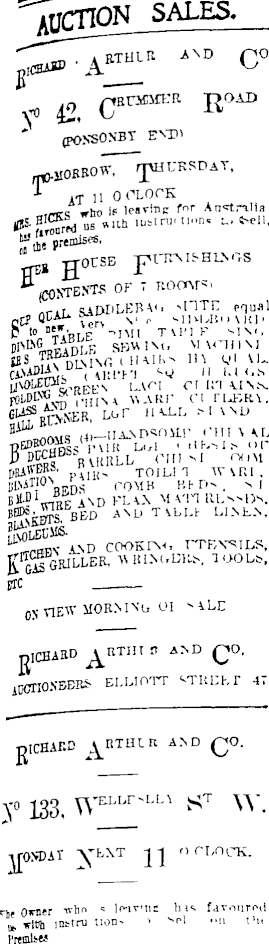 AUCTION SALES.
RICHARD ARTHUR AND CO
No 42, CRUMMER ROAD
(PONSONBY END)
TO-MORROW, THURSDAY,
AT 11 O CLOCK
MRS. HICKS who is leaving for Australia
has favoured us with instructions to Sell,
on the premises,
HER HOUSE FURNISHINGS
(CONTENTS OF 7 ROOMS)
SUP QUAL SADDLEBAG SUITE equal
to new, very SIDEBOARD
DINING TABLE TABLE SING
ER S TREADLE SEWING MACHINE
CANADIAN DINING CHAIRS H QUAL
LINOLEUMS CARPET SQ H RUGS
FOLDING SCREEN LACE CURTAINS
GLASS AND CHINA WARE CUTLERY,
HALL RUNNER, LGE HALL STAND
BEDROOMS (4)—HANDSOME CHEVAL
DUCHESS PAIR LGE CHESTS OF
DRAWERS, BARREL CHEST COM
BINATION PAIRS TOILET WARE,
BEDS COMB BEDS, ST
BEDS, WIRE AND FLAX MATTRESSES,
BLANKETS, BED AND TABLE LINEN,
LINOLEUMS.
KITCHEN AND COOKING UTENSILS,
GAS GRILLER, WRINGERS, TOOLS,
ETC
ON VIEW MORNING OF SALE
RICHARD ARTHUR AND CO.
AUCTIONEERS ELLIOTT STREET 47
RICHARD ARTHUR AND CO.
No 133, WELLESLEY ST W.
MONDAY NEXT 11 O CLOCK.
The Owner who is leaving has favoured
us with instructions to Sell on the
Premises